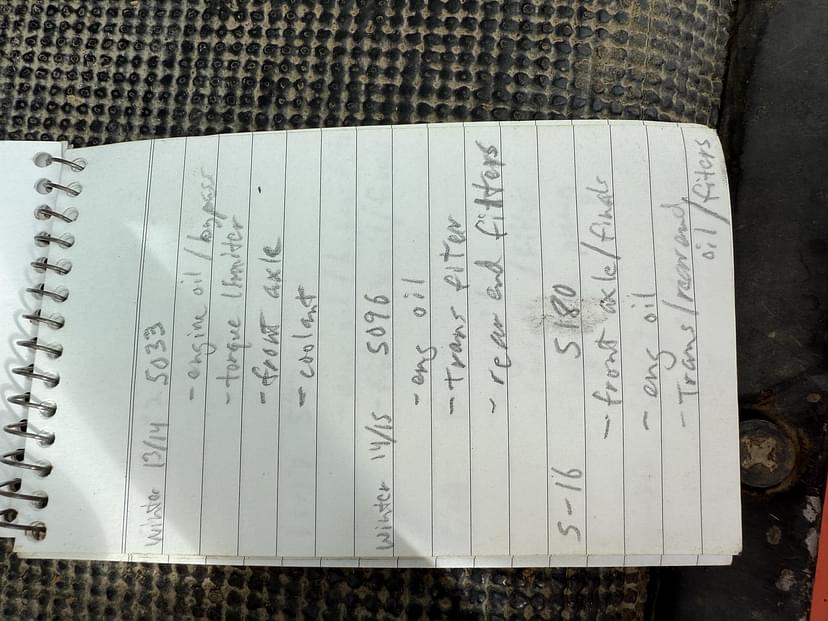 Winter 13/14 5033
- engine oil / bypass
- torque limiter
- front axle
- coolant
Winter 14/15 5096
- eng oil
- trans filter
- rear end filters
5-16 5180
- front axle/finals
- eng oil
- Trans/rearend
oil/fiters